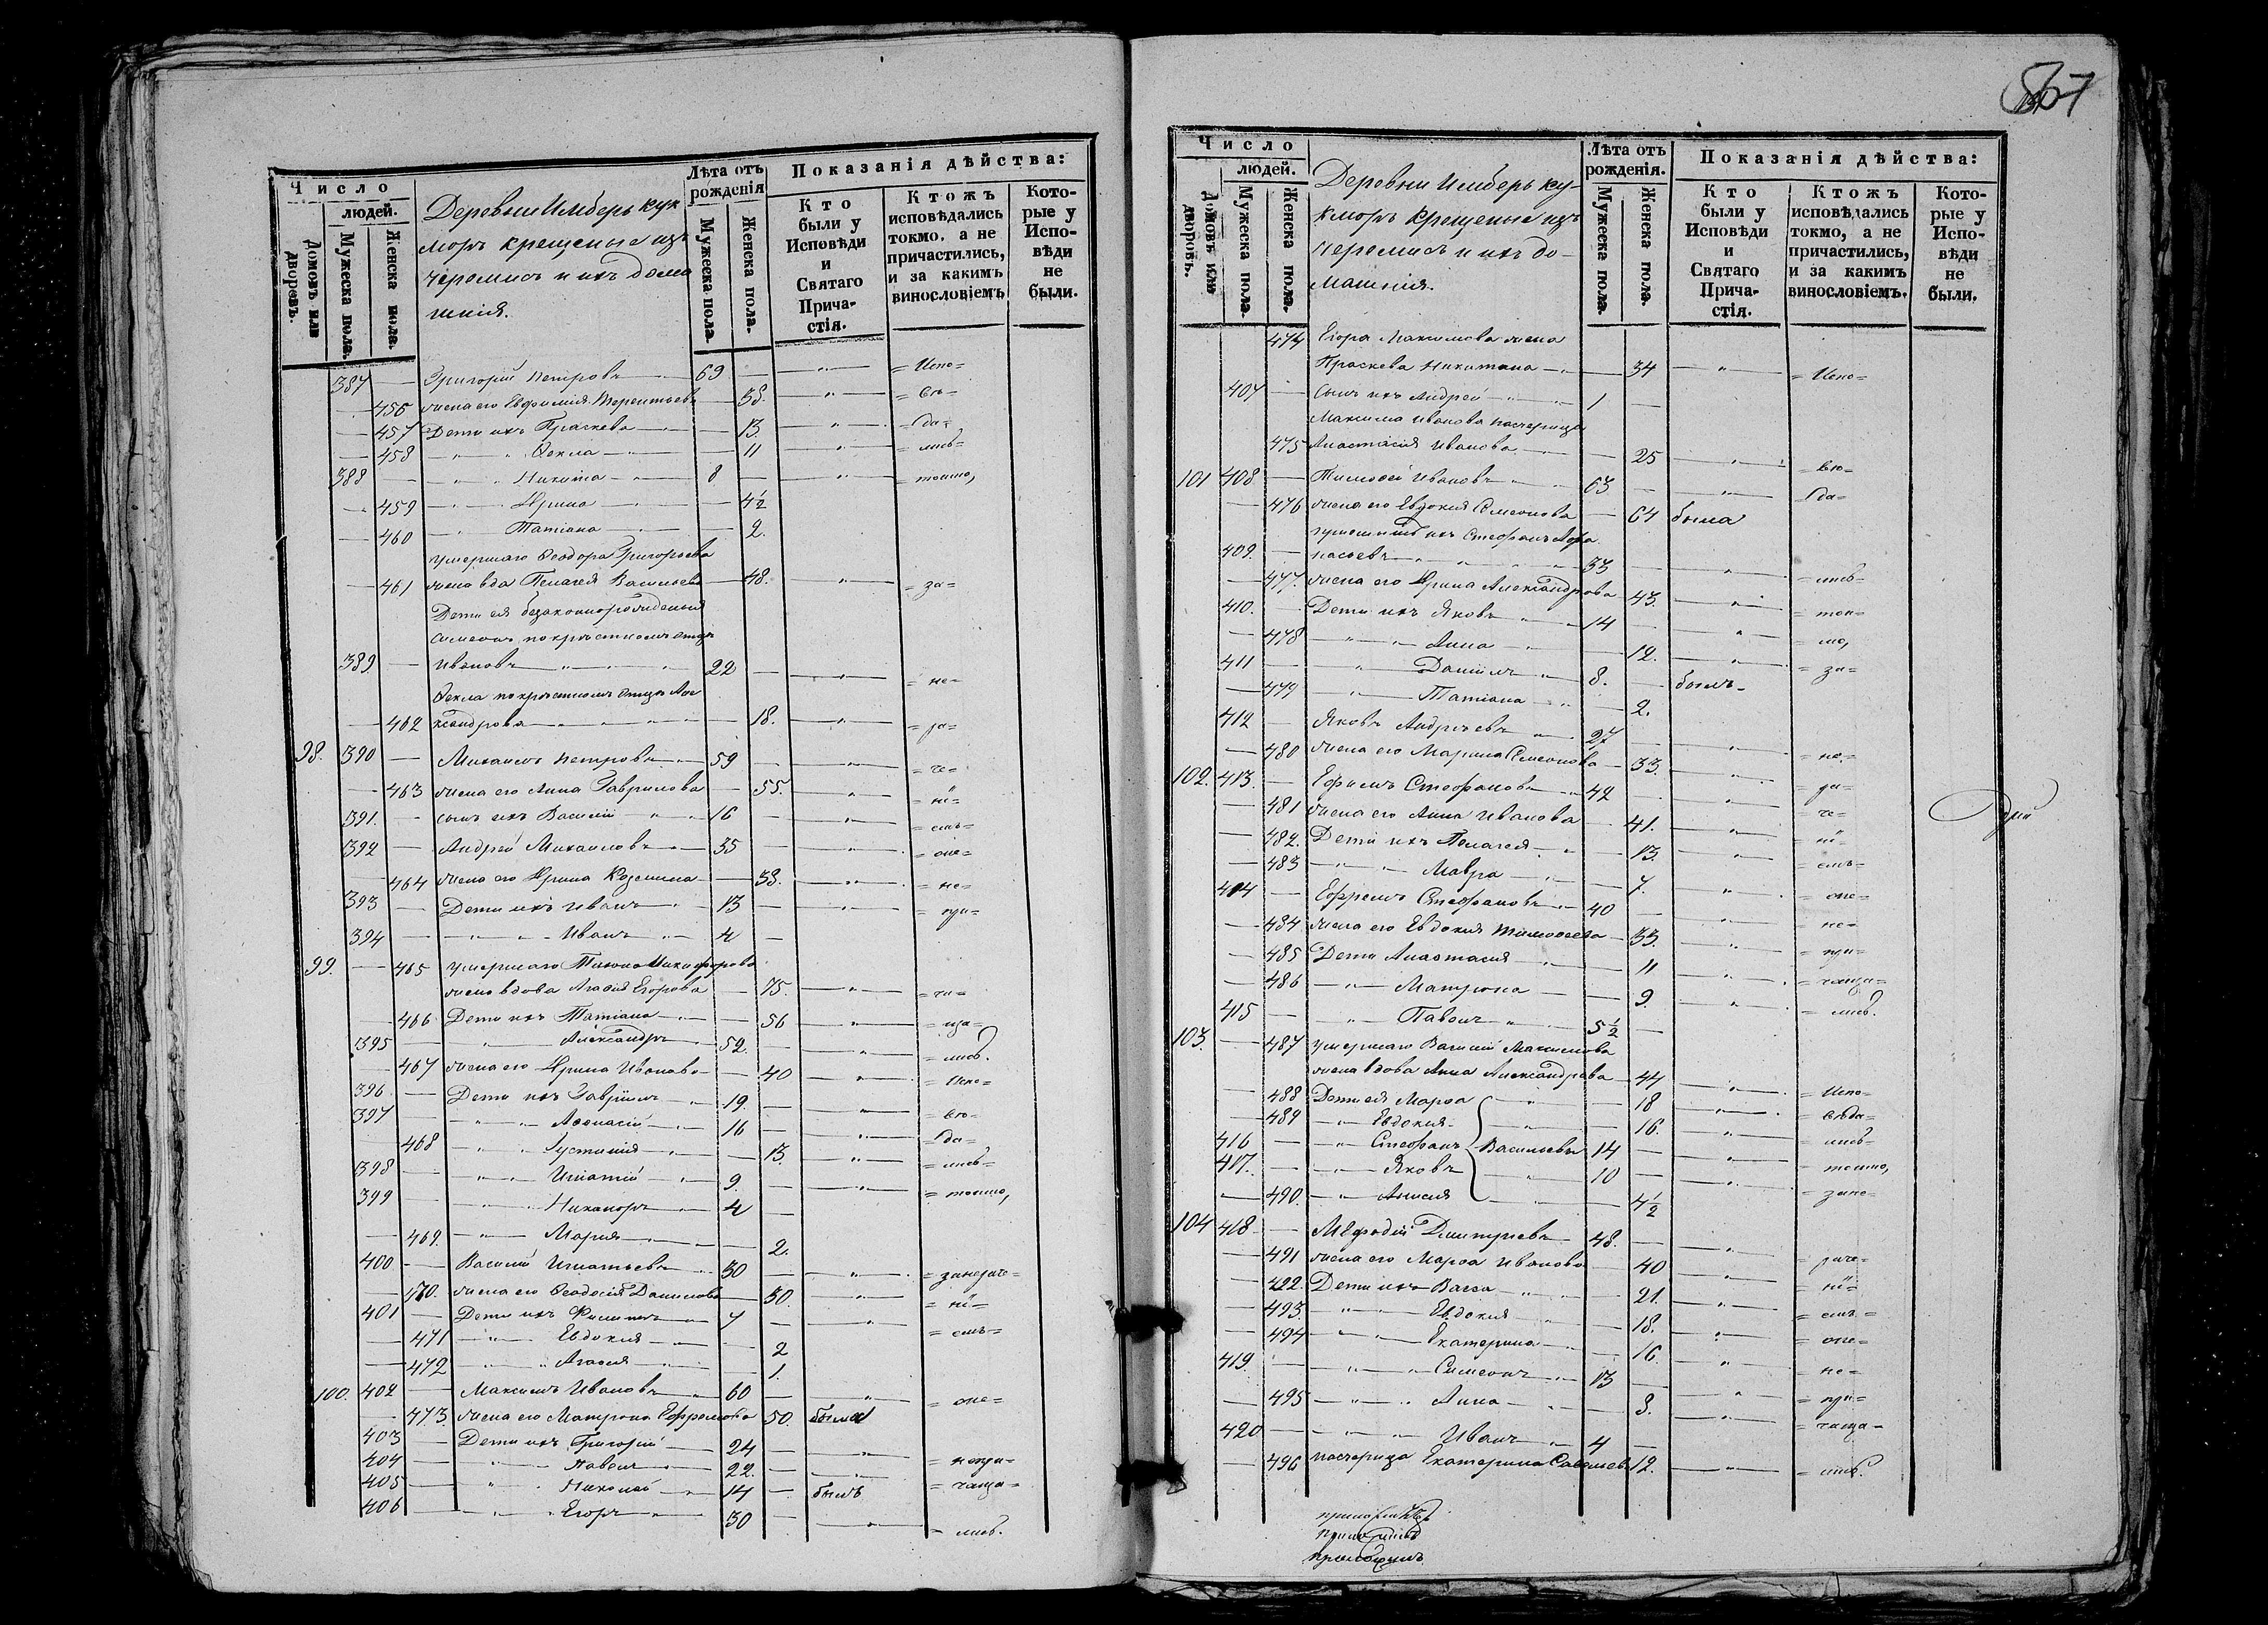 Число
людей.
Домовъ или дворовъ.
Мужеска пола.
Женска пола.
Деревни Имберь кук
моръ крещеные изъ
черемисъ и ихъ дома
шнія.
Лѣта отъ рожденія
Мужеска пола.
Женска пола.
Показанія дѣйства:
Кто были у Исповѣди и Святаго Причастія.
Ктожъ исповѣдались токмо, а не причастились, и за какимъ винословіемъ
Которые у Исповѣди не были.
387 — Григорій Петровъ — 69 — „ = Испо=
— 456 жена его Евфимія Терентьева — 38. „ = вѣ=
— 457 Дети ихъ Праскева — 13 „ = да=
— 458 — „ — Ѳекла — 11 „ = лись=
388 — „ — Никита — 8 — „ = токмо,
— 459 — „ — Ирина — 4½
— 460 — „ — Татіана — 2.
умершаго Ѳеодора Григорьева
— 461 жена вдо Пелагея Васильева — 48. „ = за=
Дети ея безаконнорожденныя
Симеонъ по крѣстномъ отцѣ
389. — Ивановъ — 22 — „ = не=
Ѳекла по крѣстномъ отцѣ Але
— 462 ксандрова — 18. „ = ра=
98. 390 — Михаилъ Петровъ — 59 — „ = че=
— 463 жена его Анна Гаврилова — 55. „ = ні=
391. — сынъ ихъ Василій — 16 — „ = емъ=
392 — Андрей Михаиловъ — 35 — „ = оне=
— 464 жена его Ирина Козмина — 38. „ = не=
393 — Дети ихъ Иванъ — 13 — „ = при=
394 — „ — Иванъ — 4 —
99. — 465 умершаго Тихона Никифорова
жена вдова Агафія Егорова — 75. „ = ча=
— 466 Дети ихъ Татіана — 56 „ = ща=
395 — „ — Александръ — 52. — „ = лись.
— 467 жена его Ирина Иванова — 40 „ = Испо=
396 — Дети ихъ Гавріилъ — 19. — „ = вѣ=
397 — „ — Аѳонасій — 16 — „ = да=
— 468 — „ — Іустинія — 13. „ = лись=
398 — „ — Игнатій — 9. — „ = токмо,
399 — „ — Никаноръ — 4 —
— 469. — „ — Марія — 2.
400 — Василій Игнатьевъ — 30 — „ = занераче=
— 470. жена его Ѳеодосія Данилова — 30. „ = ні=
401 — Дети ихъ Филиппъ — 7 — „ = емъ=
— 471 — „ — Евдокия — 2
— 472 — „ — Агафія — 1.
100. 402 — Максимъ Ивановъ — 60 — „ = оне=
— 473. жена его Матрона Ефремова 50. была
403 — Дети ихъ Григорій — 24 — „ = непри=
404 — „ — Павелъ — 22. — „ = чаща=
405 — „ — Николай — 14 — былъ
406 — „ — Егоръ — 30 — „ = лись.
567
Число
людей.
Домовъ или дворовъ.
Мужеска пола.
Женска пола.
Деревни Имберь ку-
кморъ крещеные изъ
черемисъ и ихъ до-
машнія.
Лѣта отъ рожденія.
Мужеска пола.
Женска пола.
Показанія дѣйства:
Кто были у Исповѣди и Святаго Причастія.
Ктожъ исповѣдались токмо, а не причастились, и за какимъ винословіемъ.
Которые у Исповѣди не были.
474 Егора Максимова жена
Праскева Никитина — 34 „ = Испо=
407 — сынъ ихъ Андрей — 1 —
Максима Иванова пасчерица
475 Анастасія Иванова — 25 „ = вѣ=
101 408 — Тимоѳей Ивановъ — 63 — „ = да=
— 476 жена его Евдокия Симеонова — 64 была
ихъ Стефанъ Афа
409. — насьевъ — 33 — „ = лись=
— 477. жена его Ирина Александрова 43. „ = ток=
410. Дети ихъ Яковъ — 14 — „ = мо,
— 478 — „ — Анна — 12. „ = за=
411 — „ — Даніилъ — 8. — былъ
— 479 „ — Татіана — 2.
412 — Яковъ Андреевъ — 27 — „ = не=
— 480 жена его Марина Симеонова — 33. „ = ра=
102. 413. — Ефимъ Стефановъ — 42 — „ = че=
— 481 жена его Анна Иванова — 41. „ = ні=
— 482. Дети ихъ Пелагея — 13. „ = емъ=
— 483 — „ — Мавра — 7. „ = оне=
414 — Ефремъ Стефановъ — 40 — „ = не=
— 484 жена его Евдокия Тимоѳеева — 33. „ = при=
— 485 Дети Анастасія — 11 „ = чаща=
— 486 — „ — Матрона — 9. „ = лись.
415 — „ — Павелъ — 5½ —
103. — 487 умершаго Василія Максимова
жена вдова Анна Александрова — 44 „ = Испо=
— 488 Дети ея Марѳа — 18 „ = вѣда=
— 489 — „ — Евдокия — 16. „ = лись=
416 — „ — Стефанъ Васильевы 14 — „ = токмо,
417. — „ — Яковъ — 10 — „ = зане=
— 490. — „ — Анисія — 4½
104 418 — Меѳодій Дмитріевъ — 48. — „ = раче=
— 491 жена его Марѳа Иванова — 40 „ = ні=
— 492. Дети ихъ Васса — 21. „ = емъ=
— 493. — „ — Евдокия — 18. „ = оне=
— 494 — „ — Екатерина — 16. „ = не=
419. — „ — Симеонъ — 13 — „ = при=
— 495 — „ — Анна — 8. „ = чаща=
420 — „ — Иванъ — 4 —
— 496 пасчерица Екатерина Савельев. 12. „ = лись.